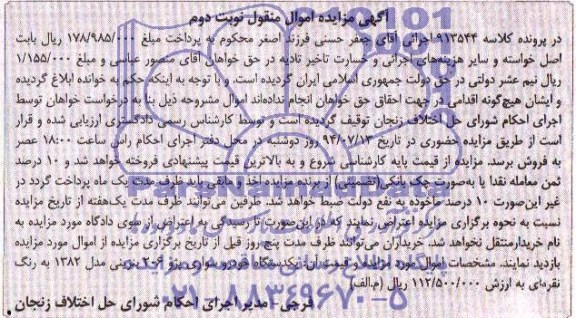 آگهی مزایده اموال منقول نوبت دوم
در پرونده کلاسه ۹۱۳۵۴۴ اجرائی آقای جعفر حسنی فرزند اصغر محکوم به پرداخت مبلغ ۱۷۸/۹۸۵/۰۰۰ ریال بابت
اصل خواسته و سایر هزینه‌های اجرائی و خسارت تاخیر تادیه در حق خواهان آقای منصور عباسی و مبلغ ۱/۱۵۵/۰۰۰
ریال نیم عشر دولتی در حق دولت جمهوری اسلامی ایران گردیده است. و با توجه به اینکه حکم به خوانده ابلاغ گردیده
و ایشان هیچ‌گونه اقدامی در جهت احقاق حق خواهان انجام نداده‌اند اموال مشروحه ذیل بنا به درخواست خواهان توسط
اجرای احکام شورای حل اختلاف زنجان توقیف گردیده است و توسط کارشناس رسمی دادگستری ارزیابی شده و قرار
است از طریق مزایده حضوری در تاریخ ۹۴/۰۷/۱۳ روز دوشنبه در محل دفتر اجرای احکام راس ساعت ۱۸:۰۰ عصر
به فروش برسد. مزایده از قیمت پایه کارشناسی شروع و به بالاترین قیمت پیشنهادی فروخته خواهد شد و ۱۰ درصد
ثمن معامله نقدا یا به‌صورت چک بانکی(تضمینی) از برنده مزایده اخذ و مابقی باید ظرف مدت یک ماه پرداخت گردد در
غیر این‌صورت ۱۰ درصد ماخوذه به نفع دولت ضبط خواهد شد. طرفین می‌توانند ظرف مدت یک‌هفته از تاریخ مزایده
نسبت به نحوه برگزاری مزایده اعتراض نمایند که در این‌صورت تا رسیدگی به اعتراض از سوی دادگاه مورد مزایده به
نام خریدار منتقل نخواهد شد. خریداران می‌توانند ظرف مدت پنج روز قبل از تاریخ برگزاری مزایده از اموال مورد مزایده
بازدید نمایند. مشخصات اموال مورد مزایده و قیمت آن: یکدستگاه خودرو سواری پژو ۲۰۶ بنزینی مدل ۱۳۸۲ به رنگ
نقره‌ای به ارزش ۱۱۲/۵۰۰/۰۰۰ ریال (م.الف)
فرجی - مدیر اجرای احکام شورای حل اختلاف زنجان
۰۲۱-۸۸۳۴۹۶۷۰-۵